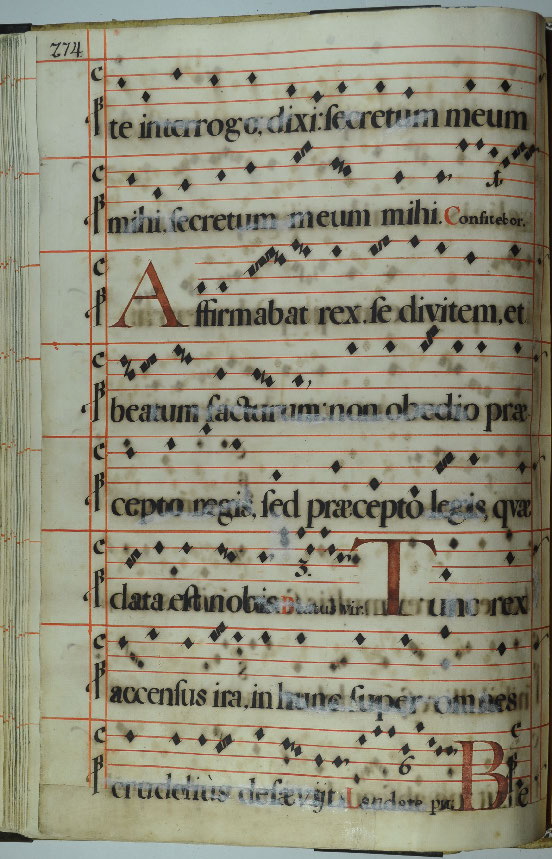 274
te interrogo, dixi: secretum meum
mihi. secretum meum mihi. Confitebor.
1.
Affirmabat rex, se divitem, et
beatum facturum: non obedio præ-
cepto regis, sed præcepto legis, quæ
data est nobis. Beatus vir. Tunc rex
3.
accensus ira, in hunc super omnes
crudeliùs desævijt. Laudate pu. Be
6